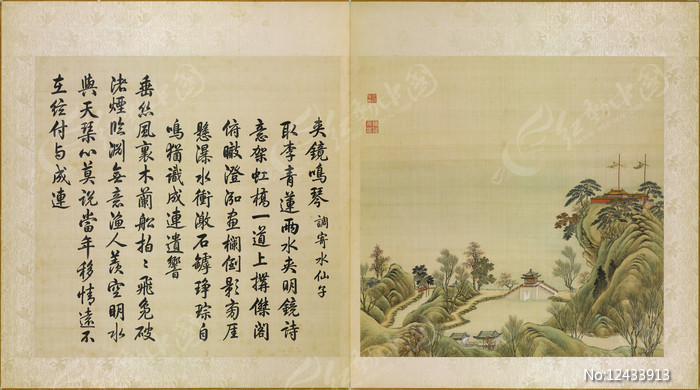 夾鏡鳴琴 調寄水仙子
取李青蓮兩水夾明鏡詩
意架虹橋一道上搆傑閣
俯瞰澄泓畫欄倒影旁厓
懸瀑水衝激石罅琤琮自
鳴猶識成連遺響
垂絲風裏木蘭船拍〻飛鳧破
渚煙臨淵無意漁人羨空明水
與天琴心莫說當年移情遠不
在絃付与成連
No:12433913